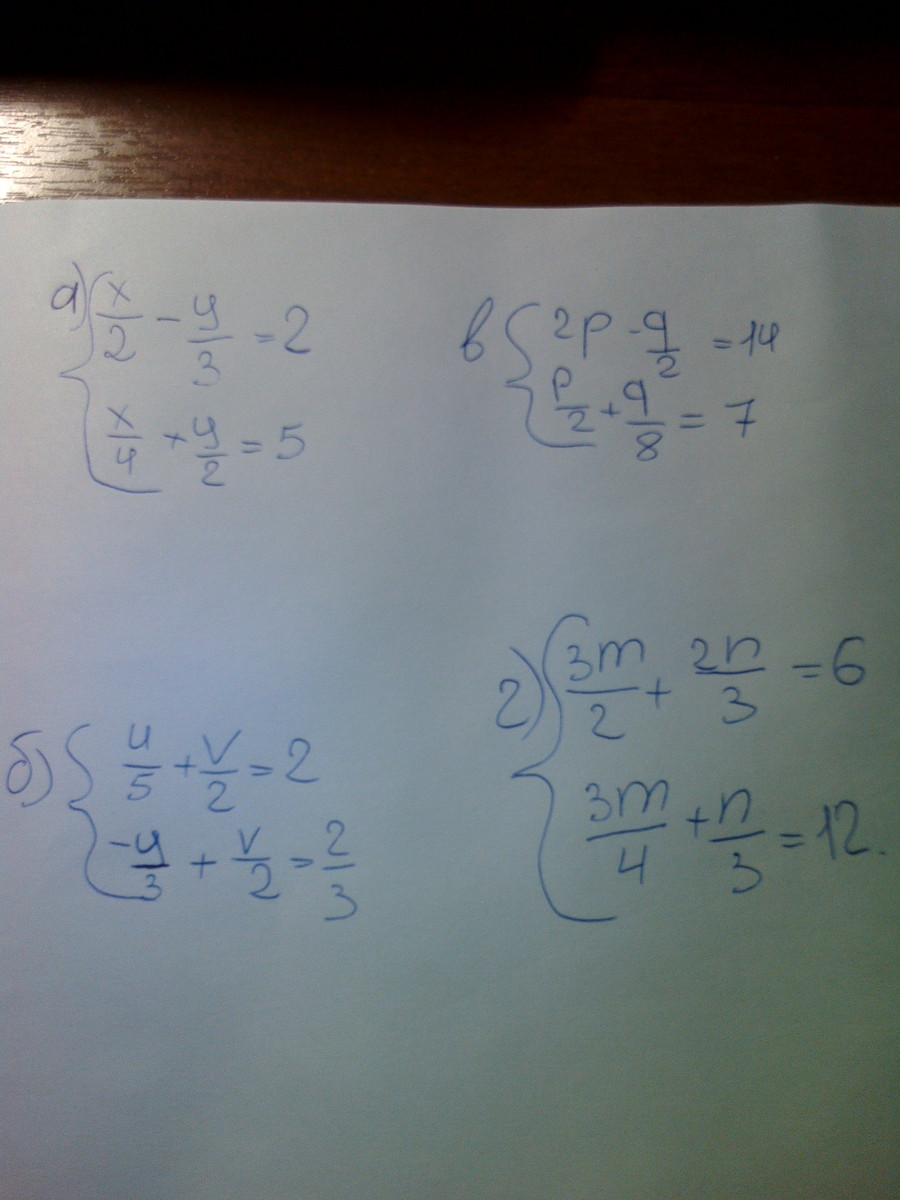 а) { x/2 - y/3 = 2
x/4 + y/2 = 5
в { 2p - q/2 = 14
p/2 + q/8 = 7
б) { u/5 + v/2 = 2
-u/3 + v/2 = 2/3
г) { 3m/2 + 2n/3 = 6
3m/4 + n/3 = 12.